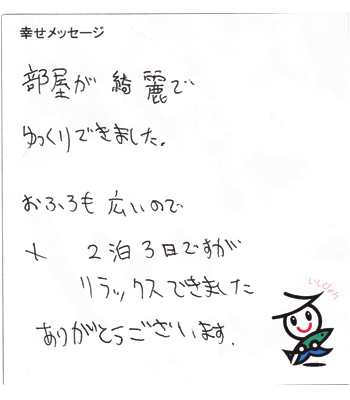 幸せメッセージ
部屋が綺麗で
ゆっくりできました。
おふろも広いので
2泊3日ですが
リラックスできました
ありがとうございます.